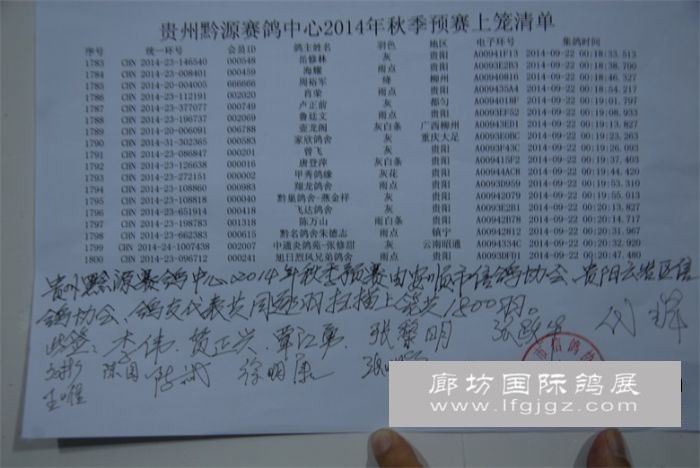 贵州黔源赛鸽中心2014年秋季预赛上笼清单
序号 统一环号 会员ID 鸽主姓名 羽色 地区 电子环号 集鸽时间
1783 CHN 2014-23-146540 000548 岳修林 灰 贵阳 A00941F13 2014-09-22 00:18:33.513
1784 CHN 2014-23-008401 000459 海耀 雨点 贵阳 A0093E2B3 2014-09-22 00:18:38.700
1785 CHN 2014-20-004005 066666 周裕军 绛 柳州 A00940816 2014-09-22 00:18:46.327
1786 CHN 2014-23-112191 002020 肖荣 雨点 贵阳 A009435A4 2014-09-22 00:18:54.217
1787 CHN 2014-23-377077 000749 卢正前 灰 都匀 A0094018F 2014-09-22 00:19:01.797
1788 CHN 2014-23-196737 002069 鲁廷文 雨点 贵阳 A0093EF52 2014-09-22 00:19:08.933
1789 CHN 2014-20-006091 006788 壶龙阁 灰白条 广西柳州 A00943ED1 2014-09-22 00:19:13.827
1790 CHN 2014-31-302365 000583 家欣鸽舍 灰 重庆大足 A0093E0BC 2014-09-22 00:19:23.263
1791 CHN 2014-23-086847 000201 曾飞 灰 贵阳 A0093F43C 2014-09-22 00:19:26.093
1792 CHN 2014-23-126638 000016 唐登萍 灰白条 贵阳 A009415F2 2014-09-22 00:19:37.403
1793 CHN 2014-23-272151 000002 甲秀鸽缘 灰花 贵阳 A00944AC8 2014-09-22 00:19:44.420
1794 CHN 2014-23-108860 000983 翔龙鸽舍 雨点 贵阳 A0093D959 2014-09-22 00:19:53.310
1795 CHN 2014-23-108818 000040 黔巢鸽舍-燕金祥 灰 贵阳 A00943079 2014-09-22 00:19:55.013
1796 CHN 2014-23-651904 000418 飞达鸽舍 灰 贵阳 A00942DB2 2014-09-22 00:20:03.717
1797 CHN 2014-23-197883 001318 陈万山 雨白条 贵阳 A00942B78 2014-09-22 00:20:14.217
1798 CHN 2014-23-662383 000615 黔名鸽舍朱德志 雨点 镇宁 A00942812 2014-09-22 00:20:31.967
1799 CHN 2014-24-1007438 002007 中通炎鸽苑-张修甜 灰 云南昭通 A0094334C 2014-09-22 00:20:32.920
1800 CHN 2014-23-096712 000241 旭日烈风兄弟鸽舍 灰 贵阳 A0093D6F1 2014-09-22 00:20:47.650
贵州黔源赛鸽中心2014年秋季预赛由安顺市信鸽协会、贵阳云岩区信
鸽协会、鸽友代表共同 扫描上笼共1800羽。
李伟 黄正兴 覃江勇 张黎明
陈国 徐明康
王曜
廊坊国际鸽展
www.lfgjgz.com